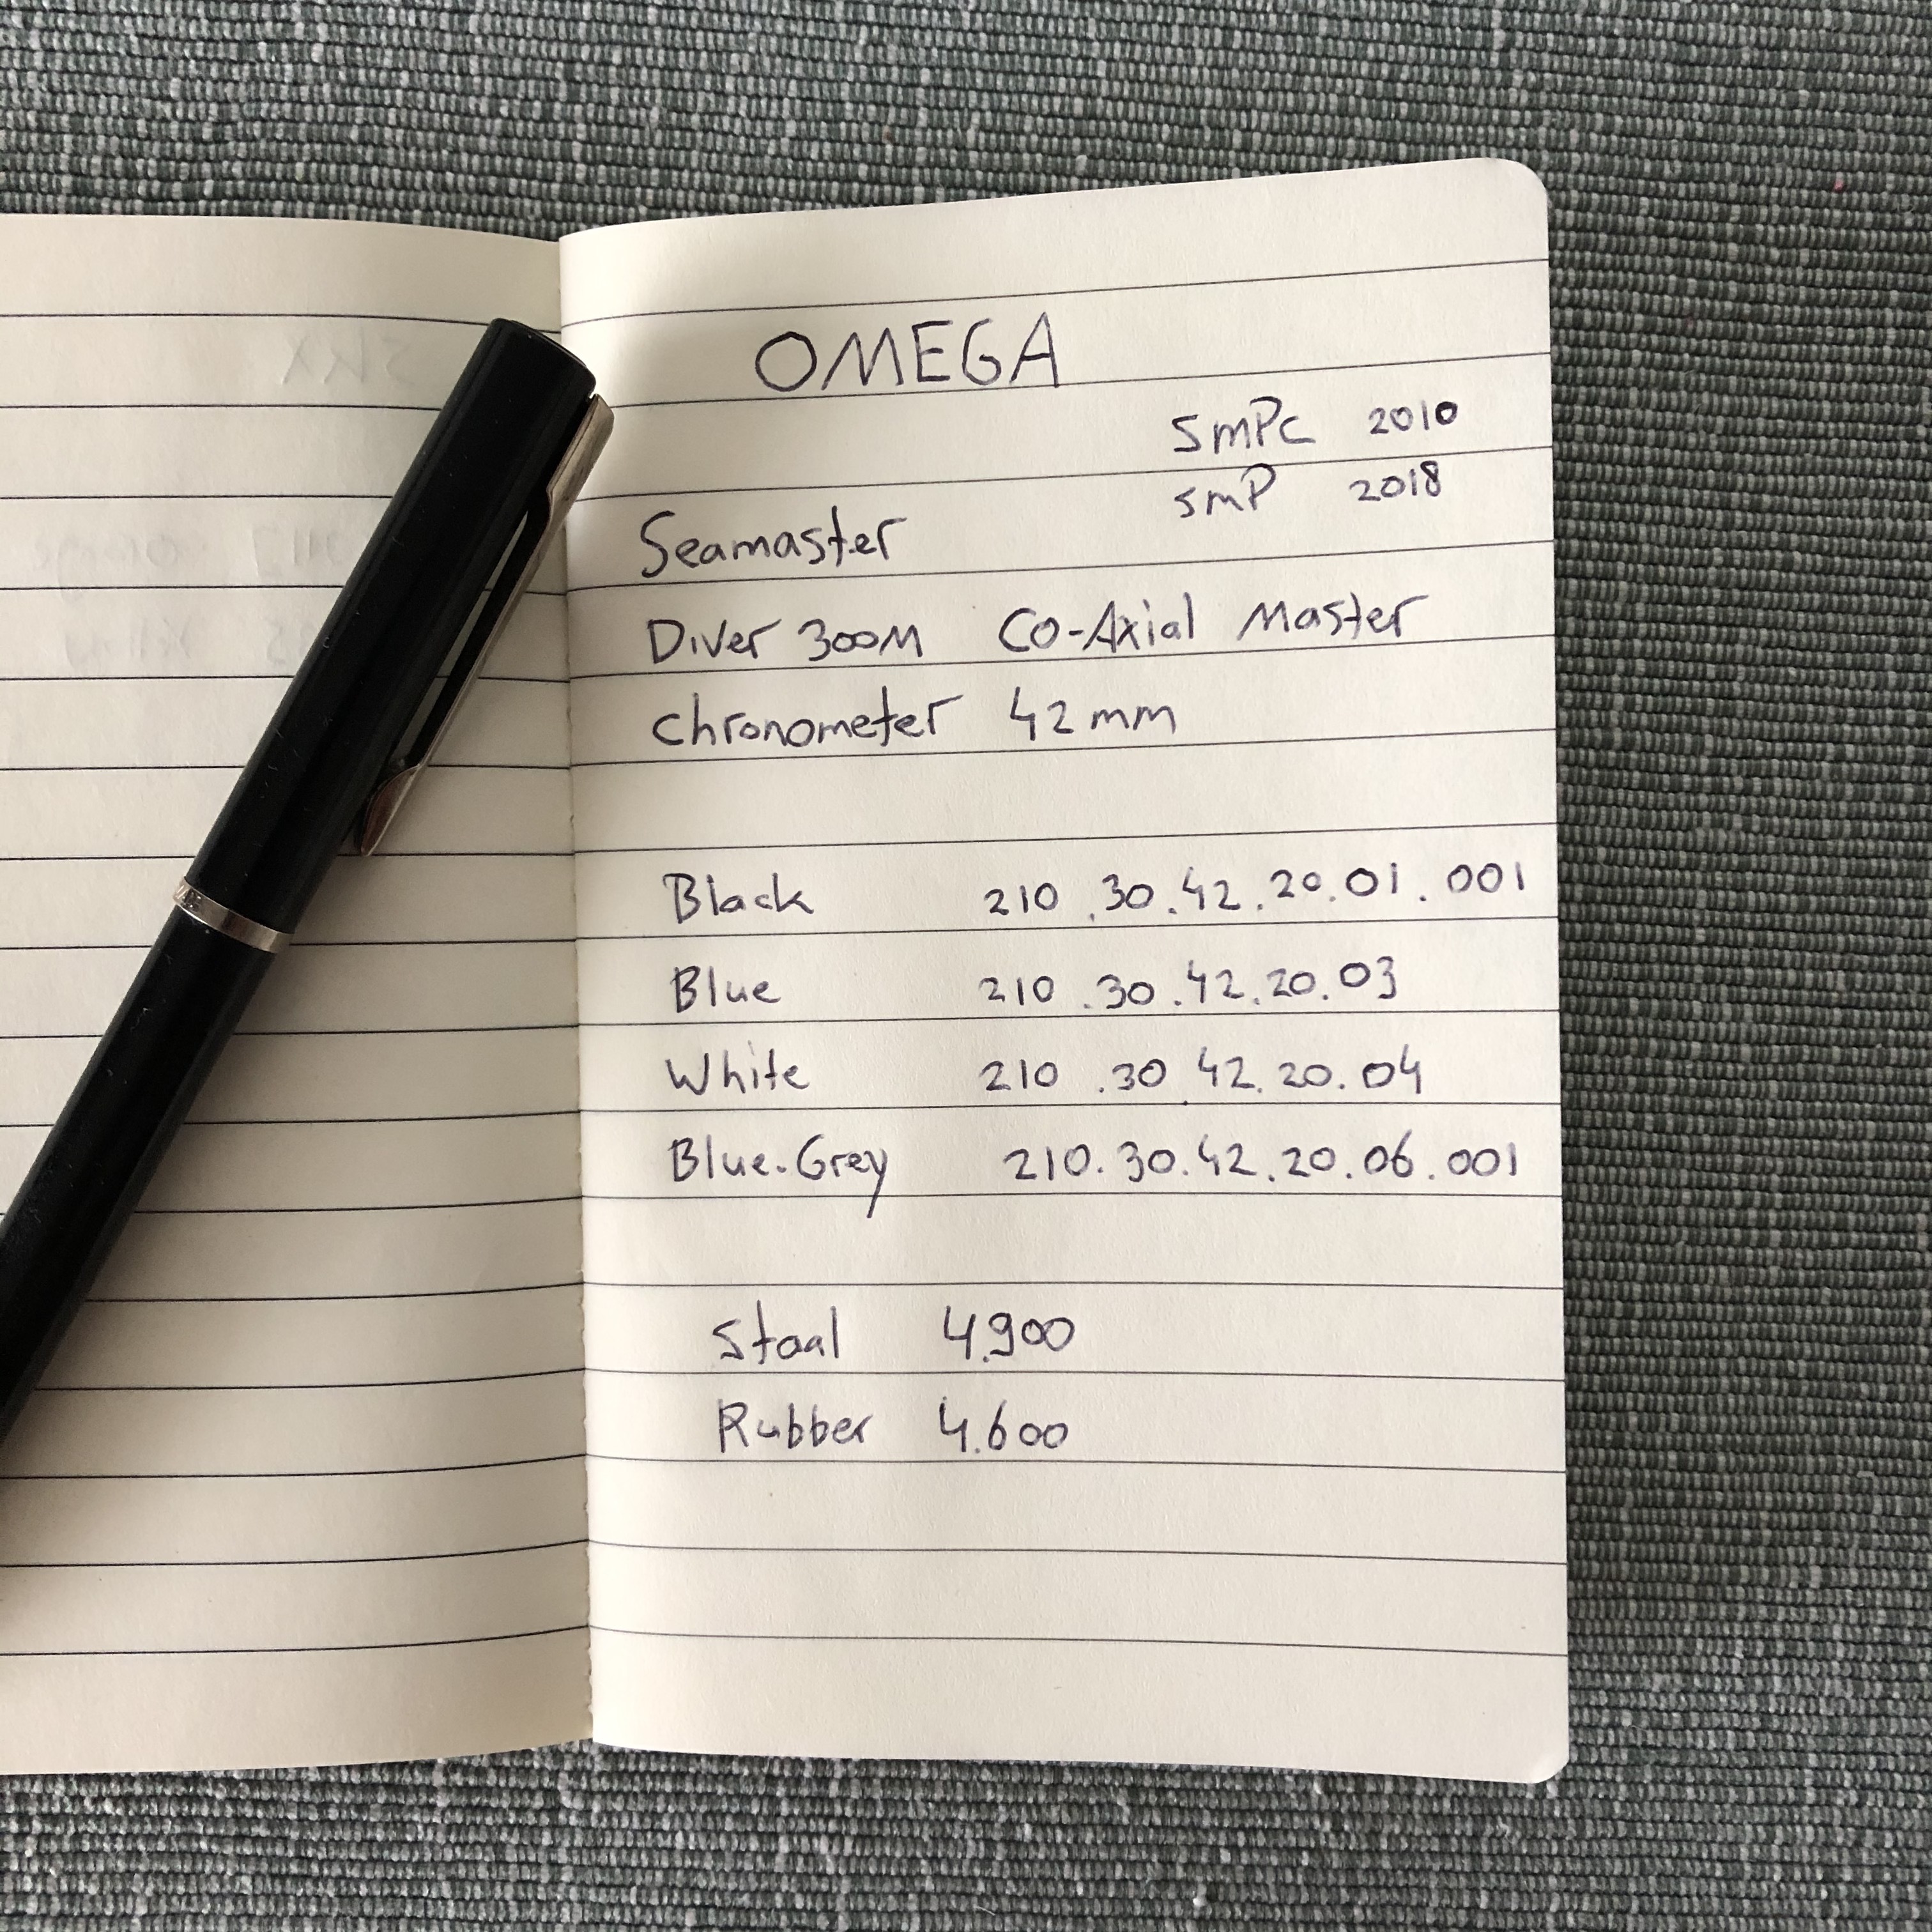 OMEGA
SMPC 2010
SMP 2018
Seamaster
Diver 300M Co-Axial Master
Chronometer 42mm
Black 210.30.42.20.01.001
Blue 210.30.42.20.03
White 210.30 42.20.04
Blue-Grey 210.30.42.20.06.001
Staal 4.900
Rubber 4.600
SKX